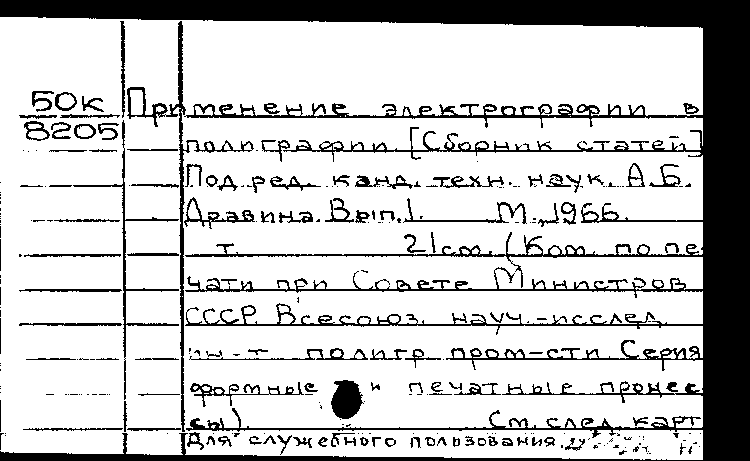 50к Применение электрографии в
8205 полиграфии. [Сборник статей]
Под ред. канд. техн. наук. А.Б.
Дравина. Вып. 1. М., 1966.
т. 21 см. (Ком. по пе-
чати при Совете Министров
СССР. Всесоюз. науч.-исслед.
ин-т полигр. пром-сти. Серия
формные и печатные процес-
сы). См. след. карт
Для служебного пользования.